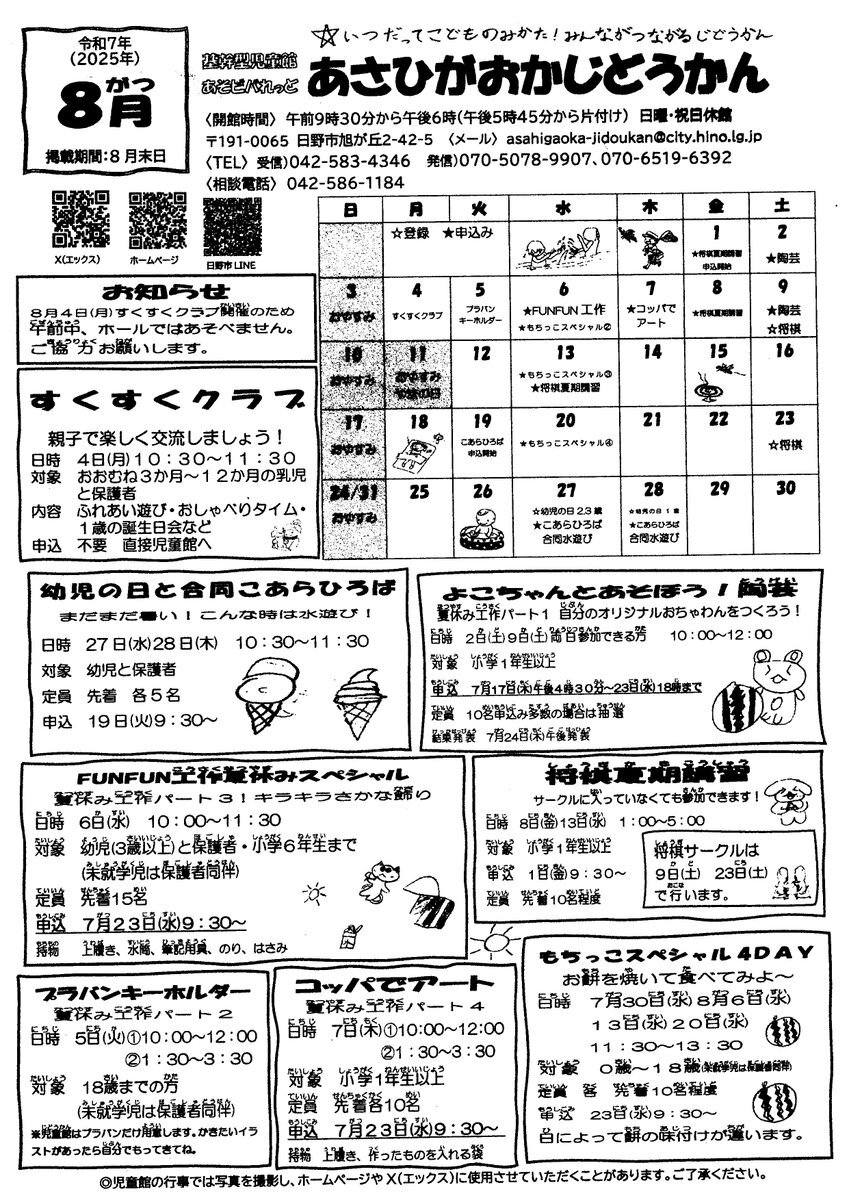 令和7年
(2025年)
8月
がつ
掲載期間:8月末日
☆いつだってこどものみかた!みんながつながるじどうかん
基幹型児童館
あそビバれっと
あさひがおかじどうかん
〈開館時間〉 午前9時30分から午後6時(午後5時45分から片付け) 日曜・祝日休館
〒191-0065 日野市旭が丘2-42-5 〈メール〉 asahigaoka-jidoukan@city.hino.lg.jp
〈TEL〉 受信)042-583-4346 発信)070-5078-9907、070-6519-6392
〈相談電話〉 042-586-1184
X(エックス) ホームページ 日野市LINE
日 月 火 水 木 金 土
☆登録 ★申込み
1 ★将棋夏期講習 申込開始
2 ★陶芸
3 おやすみ
4 すくすくクラブ
5 プラバンキーホルダー
6 ★FUNFUN工作 ★もちっこスペシャル②
7 ★コッパでアート
8 ★将棋夏期講習
9 ★陶芸 ☆将棋
10 おやすみ
11 おやすみ 山の日
12
13 ★もちっこスペシャル③ ★将棋夏期講習
14
15
16
17 おやすみ
18
19 こあらひろば 申込開始
20 ★もちっこスペシャル④
21
22
23 ☆将棋
24/31 おやすみ
25
26
27 ☆幼児の日2.3歳 ★こあらひろば 合同水遊び
28 ☆幼児の日1歳 ★こあらひろば 合同水遊び
29
30
お知らせ
8月4日(月)すくすくクラブ開催のため
午前中、ホールではあそべません。
ご協力お願いします。
すくすくクラブ
親子で楽しく交流しましょう!
日時 4日(月)10:30~11:30
対象 おおむね3か月~12か月の乳児
と保護者
内容 ふれあい遊び・おしゃべりタイム・
1歳の誕生日会など
申込 不要 直接児童館へ
幼児の日と合同こあらひろば
まだまだ暑い!こんな時は水遊び!
日時 27日(水)28日(木) 10:30~11:30
対象 幼児と保護者
定員 先着 各5名
申込 19日(火)9:30~
よこちゃんとあそぼう!陶芸
夏休み工作パート1 自分のオリジナルおちゃわんをつくろう!
日時 2日(土)9日(土)両日参加できる方 10:00~12:00
対象 小学1年生以上
申込 7月17日(木)午後4時30分~23日(水)18時まで
定員 10名申込み多数の場合は抽選
結果発表 7月24日(木)午後発表
FUNFUN工作夏休みスペシャル
夏休み工作パート3!キラキラさかな飾り
日時 6日(水) 10:00~11:30
対象 幼児(3歳以上)と保護者・小学6年生まで
(未就学児は保護者同伴)
定員 先着15名
申込 7月23日(水)9:30~
持物 上履き、水筒、筆記用具、のり、はさみ
将棋夏期講習
サークルに入っていなくても参加できます!
日時 8日(金)13日(水) 1:00~5:00
対象 小学1年生以上
申込 1日(金)9:30~
定員 先着10名程度
将棋サークルは
9日(土) 23日(土)
で行います。
プラバンキーホルダー
夏休み工作パート2
日時 5日(火)①10:00~12:00
②1:30~3:30
対象 18歳までの方
(未就学児は保護者同伴)
※児童館はプラバンだけ用意します。かきたいイラ
ストがあったら自分でもってきてね。
コッパでアート
夏休み工作パート4
日時 7日(木)①10:00~12:00
②1:30~3:30
対象 小学1年生以上
定員 先着各10名
申込 7月23日(水)9:30~
持物 上履き、作ったものを入れる袋
もちっこスペシャル4DAY
お餅を焼いて食べてみよ~
日時 7月30日(水)8月6日(水)
13日(水)20日(水)
11:30~13:30
対象 0歳~18歳(未就学児は保護者同伴)
定員 各 先着10名程度
申込 23日(水)9:30~
日によって餅の味付けが違います。
◎児童館の行事では写真を撮影し、ホームページやX(エックス)に使用させていただくことがあります。ご了承ください。